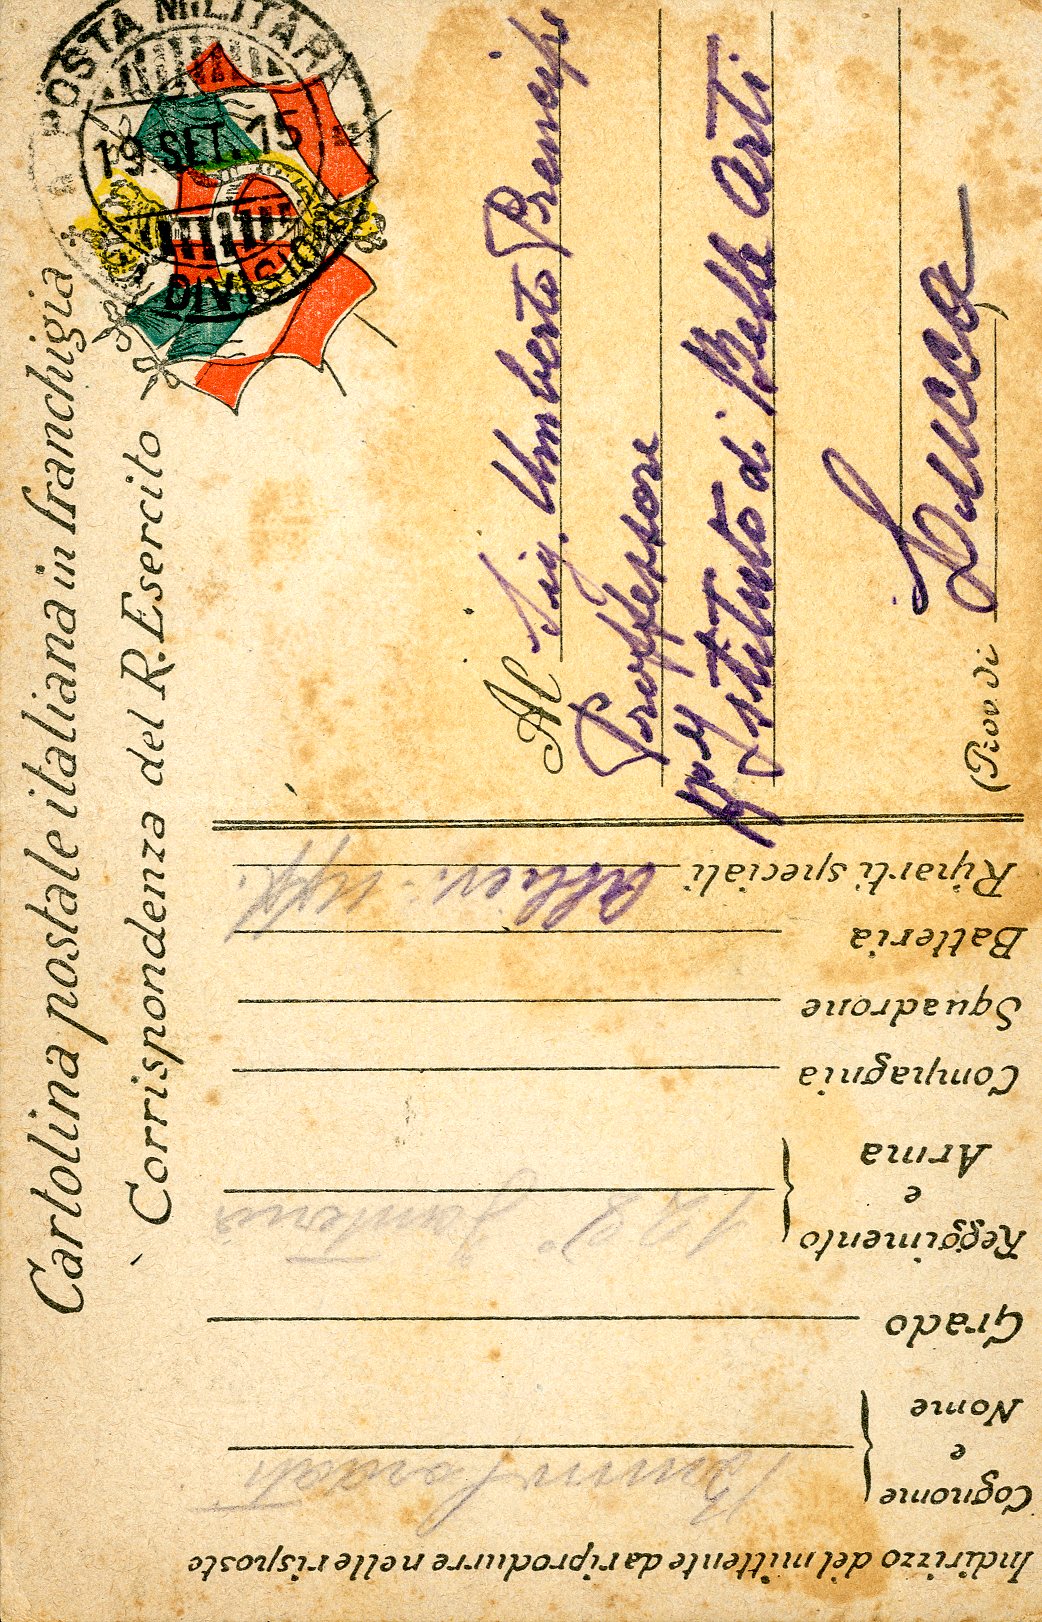 Cartolina postale italiana in franchigia
Corrispondenza del R. Esercito
POSTA MILITARE
19.SET.15
DIVISIONE
Al Sig. Umberto Prencipe
Professore
Istituto di Belle Arti
Lucca
(Prov. di
Indirizzo del mittente da riprodurre nelle risposte
Cognome e Nome
Grado
Reggimento e Arma 122° Fanteria
Compagnia
Squadrone
Batteria
Riparti speciali allievi uff.